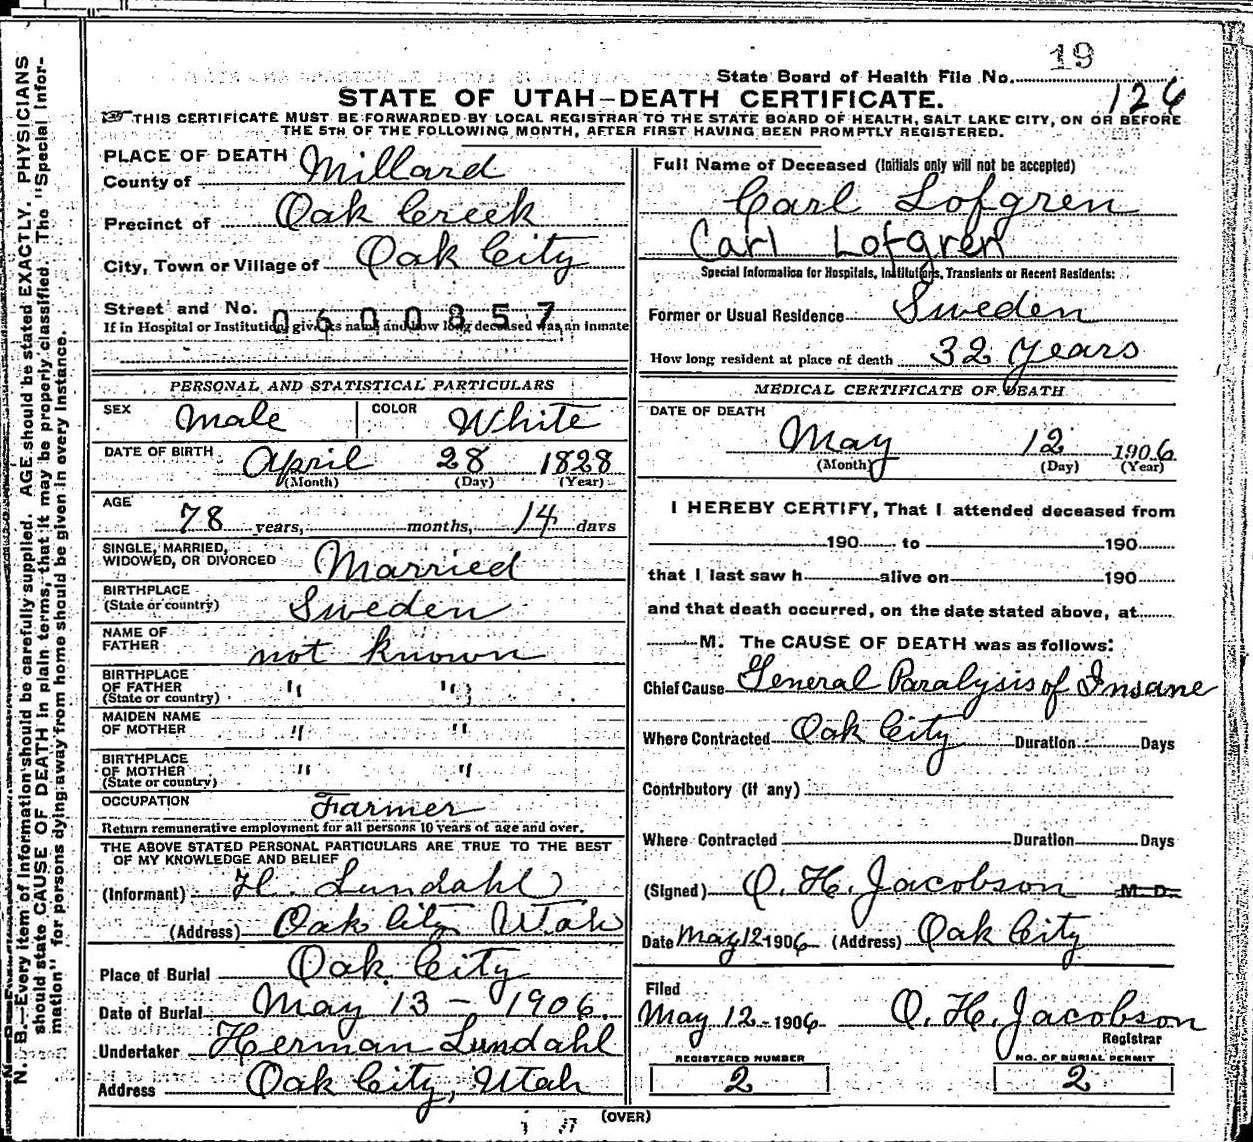 19
State Board of Health File No.
126
STATE OF UTAH—DEATH CERTIFICATE.
THIS CERTIFICATE MUST BE FORWARDED BY LOCAL REGISTRAR TO THE STATE BOARD OF HEALTH, SALT LAKE CITY, ON OR BEFORE
THE 5TH OF THE FOLLOWING MONTH, AFTER FIRST HAVING BEEN PROMPTLY REGISTERED.
N. B.—Every item of information should be carefully supplied. AGE should be stated EXACTLY. PHYSICIANS
should state CAUSE OF DEATH in plain terms, that it may be properly classified. The "Special Infor-
mation" for persons dying away from home should be given in every instance.
PLACE OF DEATH
County of Millard
Precinct of Oak Creek
City, Town or Village of Oak City
Street and No.
0600857
If in Hospital or Institution, give its name and how long deceased was an inmate
PERSONAL AND STATISTICAL PARTICULARS
SEX Male COLOR White
DATE OF BIRTH April 28 1828
(Month) (Day) (Year)
AGE 78 years, months, 14 days
SINGLE, MARRIED,
WIDOWED, OR DIVORCED Married
BIRTHPLACE
(State or country) Sweden
NAME OF
FATHER not known
BIRTHPLACE
OF FATHER " "
(State or country)
MAIDEN NAME
OF MOTHER " "
BIRTHPLACE
OF MOTHER " "
(State or country)
OCCUPATION Farmer
Return remunerative employment for all persons 10 years of age and over.
THE ABOVE STATED PERSONAL PARTICULARS ARE TRUE TO THE BEST
OF MY KNOWLEDGE AND BELIEF
(Informant) H. Lundahl
(Address) Oak City Utah
Place of Burial Oak City
Date of Burial May 13 - 1906.
Undertaker Herman Lundahl
Address Oak City, Utah
Full Name of Deceased (Initials only will not be accepted)
Carl Lofgren
Carl Lofgren
Special Information for Hospitals, Institutions, Transients or Recent Residents:
Former or Usual Residence Sweden
How long resident at place of death 32 Years
MEDICAL CERTIFICATE OF DEATH
DATE OF DEATH
May 12 1906
(Month) (Day) (Year)
I HEREBY CERTIFY, That I attended deceased from
190 to 190
that I last saw h alive on 190
and that death occurred, on the date stated above, at
M. The CAUSE OF DEATH was as follows:
Chief Cause General Paralysis of Insane
Where Contracted Oak City Duration Days
Contributory (if any)
Where Contracted Duration Days
(Signed) O. H. Jacobson M. D.
Date May 12 1906 (Address) Oak City
Filed
May 12 - 1906 O. H. Jacobson
Registrar
REGISTERED NUMBER NO. OF BURIAL PERMIT
2 2
(OVER)